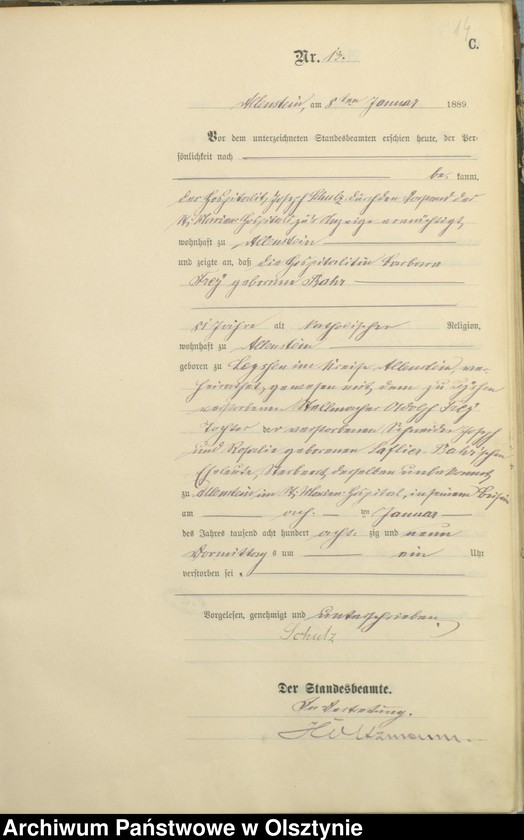 14
C.
Nr. 13.
Allenstein, am 8ten Januar 1889
Vor dem unterzeichneten Standesbeamten erschien heute, der Per-
sönlichkeit nach
be kannt,
der Hospitalit Joseph Schulz durch den Vorstand des
St. Marien Hospitals zur Anzeige ermächtigt,
wohnhaft zu Allenstein
und zeigte an, daß die Hospitalitin Barbara
Frey geborene Bahr
81 Jahre alt katholischer Religion,
wohnhaft zu Allenstein
geboren zu im Kreise Allenstein, ver-
heirathet gewesen mit dem zu
verstorbenen Stellmacher Adolph Frey
Tochter der verstorbenen Schneider Joseph
und Rosalie geborenen Bahr'schen
Eheleute, Sterbeort derselben unbekannt,
zu Allenstein im St. Marien-Hospital, in seinem Beisein
am acht ten Januar
des Jahres tausend acht hundert acht zig und neun
Vormittags um ein Uhr
verstorben sei.
Vorgelesen, genehmigt und unterschrieben.
Schulz
Der Standesbeamte.
In Vertretung.
Holtzmann.
Archiwum Państwowe w Olsztynie